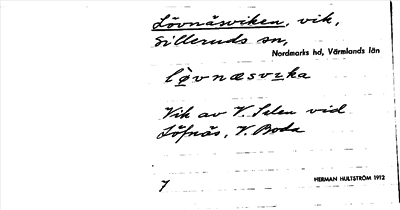 Lövnäsviken, vik,
Silleruds sn,
Nordmarks hd, Värmlands län
lövnæsvika
Vik av V. Silen vid
Löfnäs, V. Boda
7
HERMAN HULTSTRÖM 1912